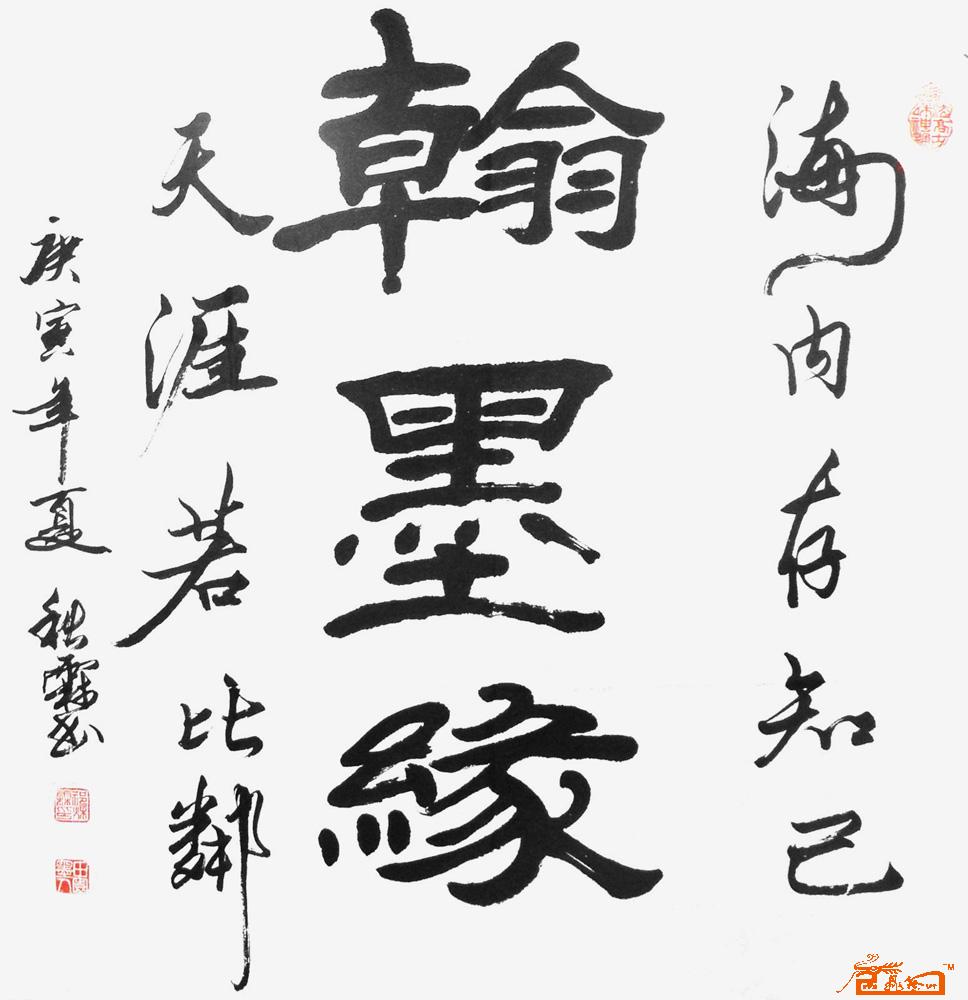 海内存知己
翰墨缘
天涯若比鄰
庚寅年夏 秋霖书